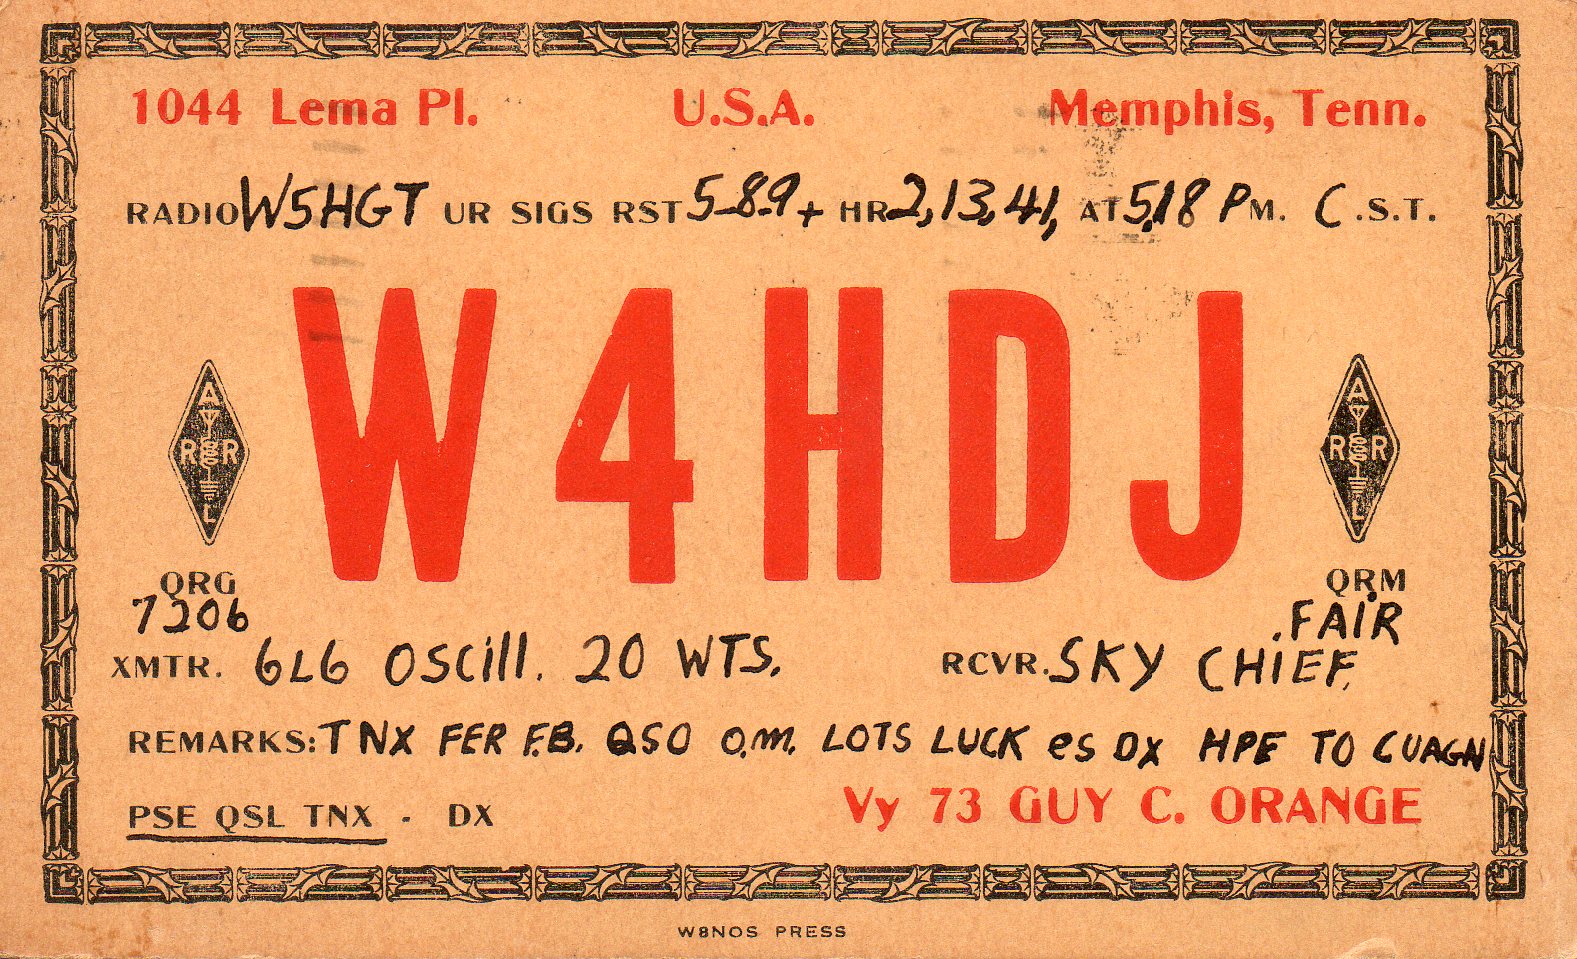 1044 Lema Pl. U.S.A. Memphis, Tenn.
RADIO W5HGT UR SIGS RST 5-8-9+ HR 2,13,41, AT 5,18 PM. C.S.T.
W4HDJ
A R R L
A R R L
QRG QRM
7206 FAIR
XMTR. 6L6 OSCill. 20 WTS. RCVR. SKY CHIEF.
REMARKS: TNX FER F.B. QSO O.M. LOTS LUCK es DX HPE TO CUAGN
PSE QSL TNX - DX Vy 73 GUY C. ORANGE
W8NOS PRESS